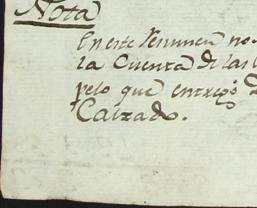 Nota
En este Resumen no
la Cuenta de las
pelo que entregó
Calzado.